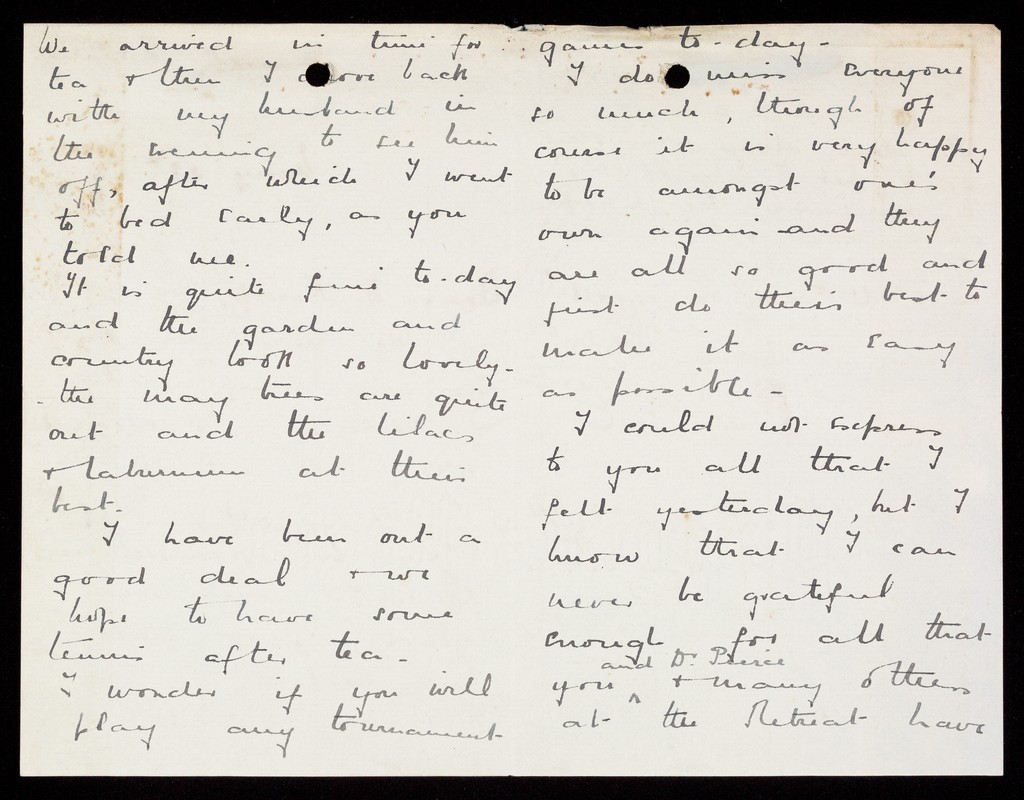 We arrived in time for
tea + then I drove back
with my husband in
the evening to see him
off, after which I went
to bed early, as you
told me.
It is quite fine to-day
and the garden and
country look so lovely -
- the may trees are quite
out and the lilacs
+ laburnum at their
best.
I have been out a
good deal + we
hope to have some
tennis after tea -
I wonder if you will
play any tournament
games to-day -
I do miss everyone
so much, though of
course it is very happy
to be amongst one's
own again and they
are all so good and
just do their best to
make it as easy
as possible -
I could not express
to you all that I
felt yesterday, but I
know that I can
never be grateful
enough for all that
and Dr. Pierce
you ^ + many others
at the Retreat have